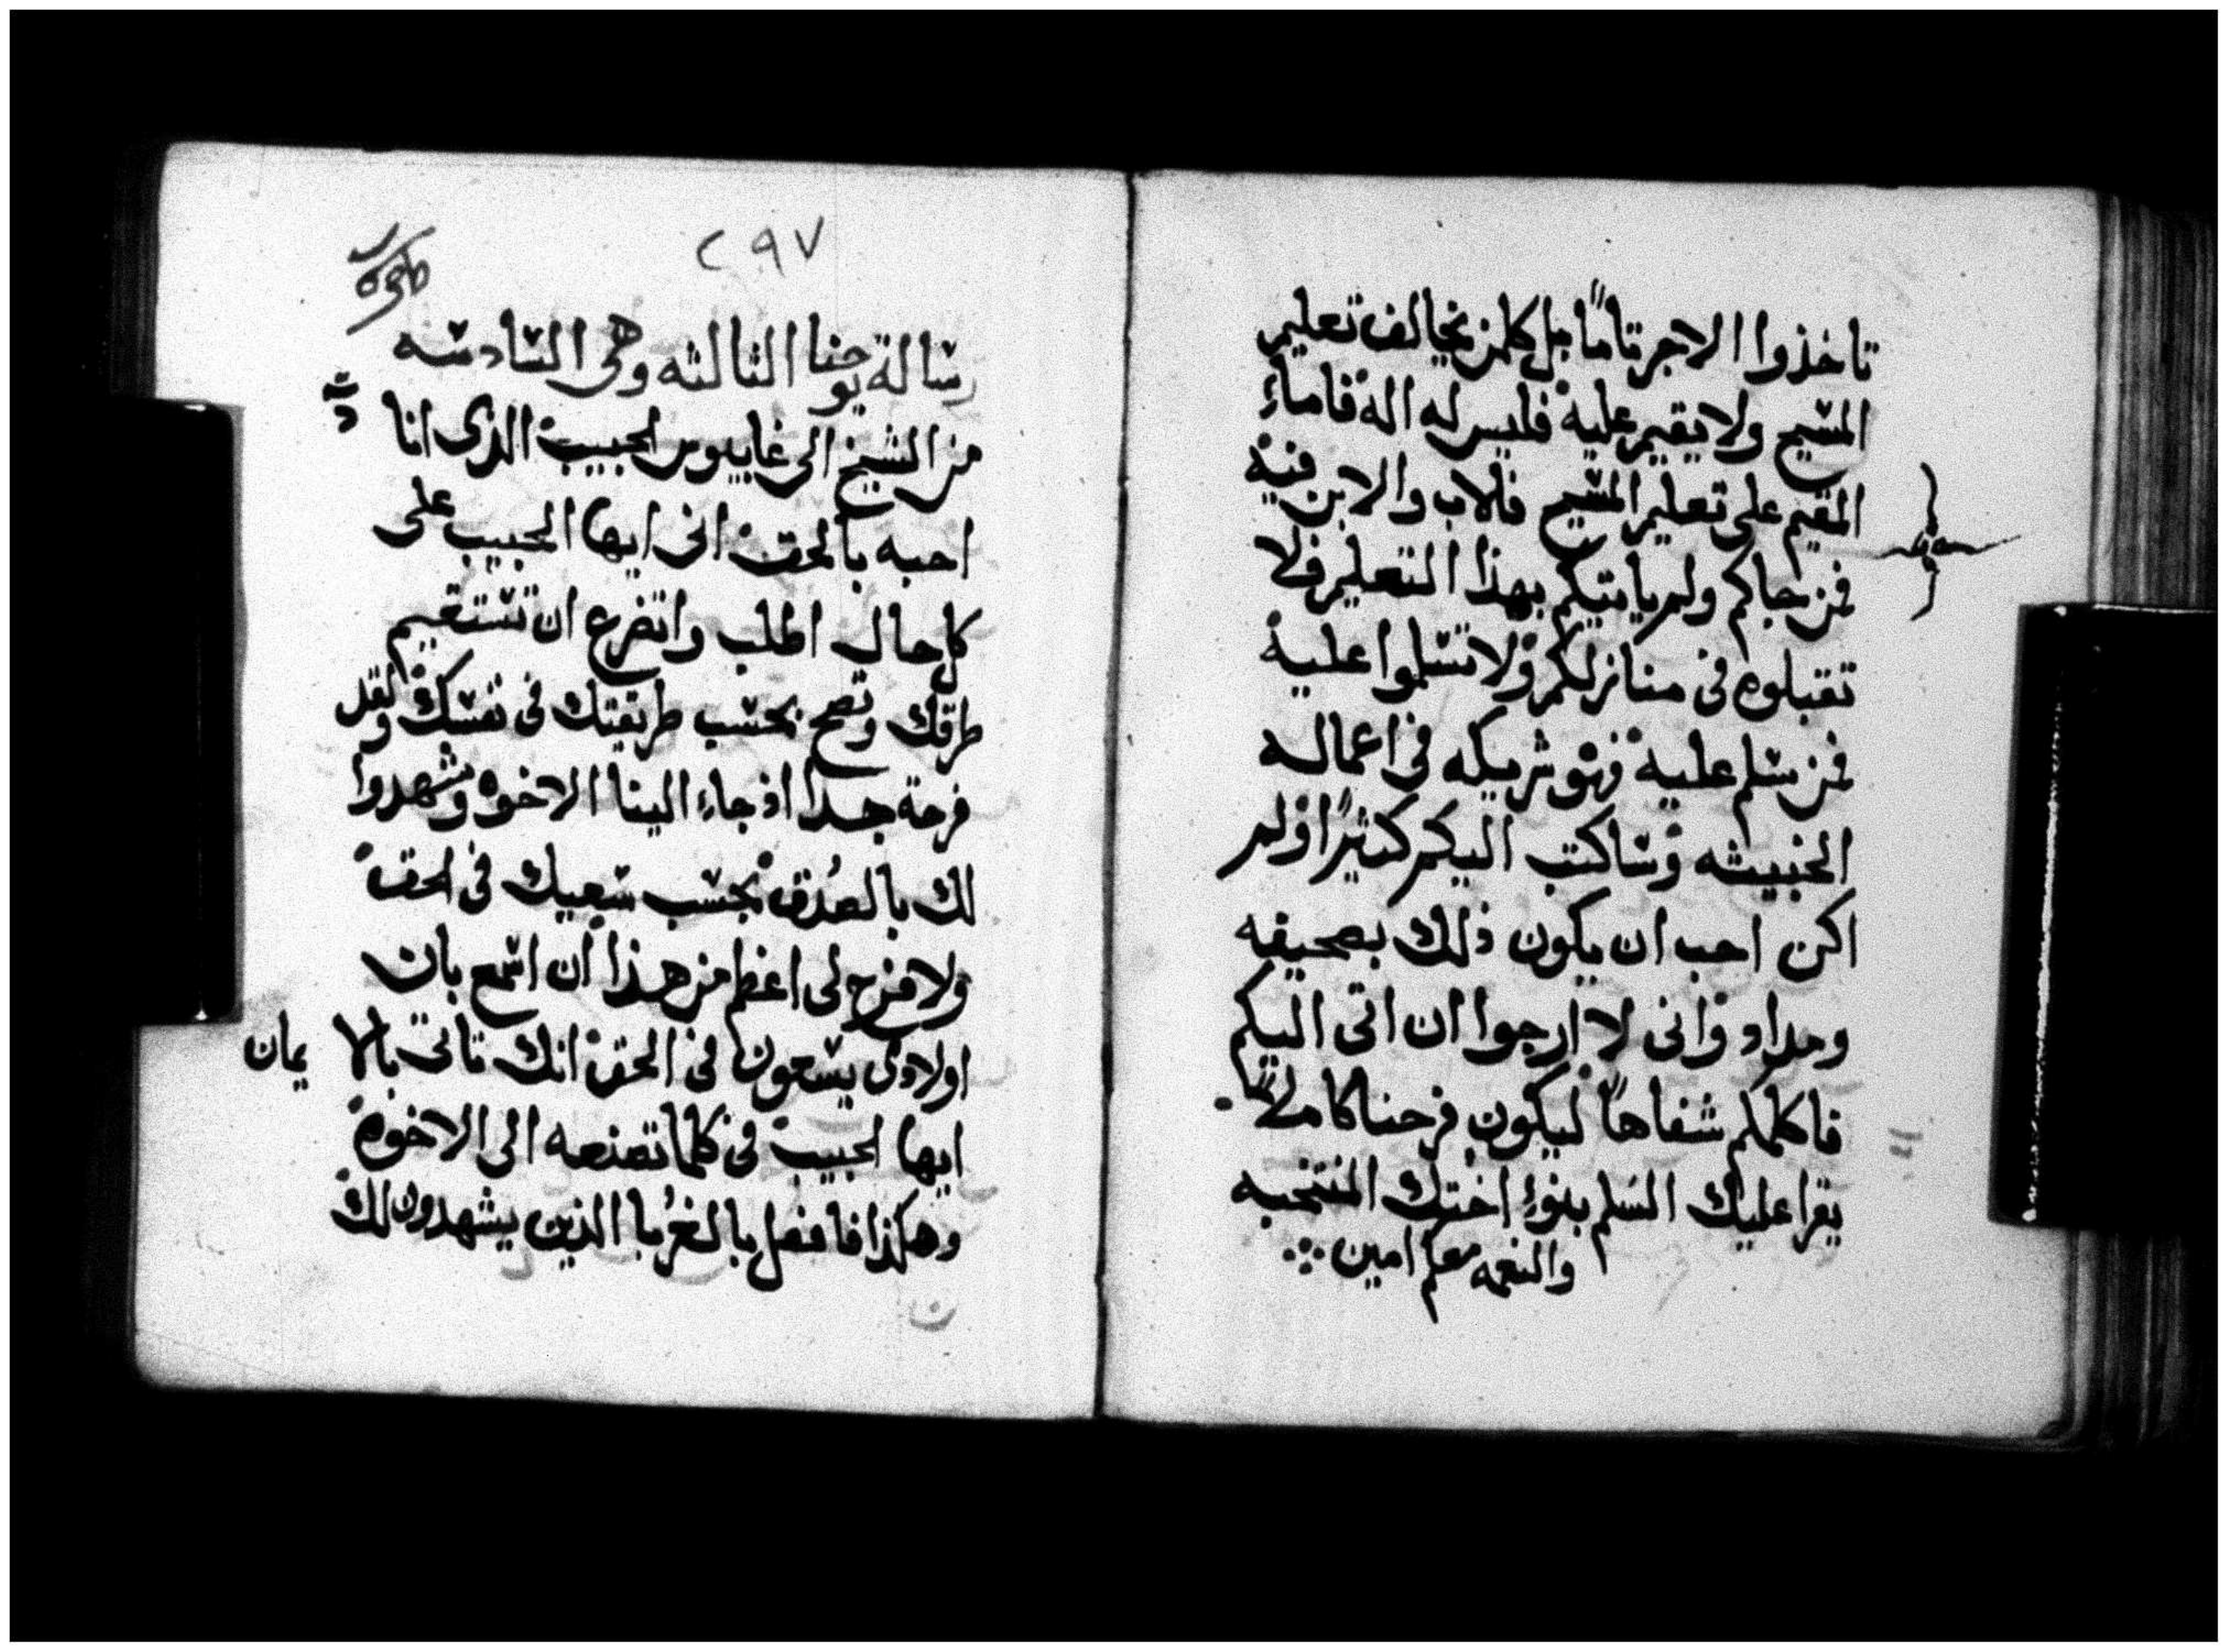 تاخذوا الاجر تاماً جل كلمن يخالف تعليم
المسيح ولا يقيم عليه فليس له اله فاماء
المقيم على تعليم المسيح فالاب والابن فيه
فمن جاكم ولم ياتيكم بهذا التعليم فلا
تقبلوه فى منازلكم ولا تسلموا عليه
فمن سلم عليه فهو شريكه فى اعماله
الخبيثه وساكتب اليكم كثيراً ولم
اكن احب ان يكون ذلك بصحيفه
ومداد وانى لا ارجوا ان اتى اليكم
فاكلمكم شفاهاً ليكون فرحنا كاملاً
يقرا عليك السلم بنوا اختك المنتخبه
والنعمه معكم امين
٢٩٧
رسالة يوحنا الثالثه وهى السادسه
من الشيخ الى غاييوس الحبيب الذى انا
احبه بالحق انى ايها الحبيب على
كل حال اطلب واتضرع ان تستقيم
طرقك وتصح بحسب طريقتك فى نفسك ولقد
فرحة جدا اذ جاء الينا الاخوه وشهدوا
لك بالصدق بحسب سعيك فى الحق
ولا فرح لى اعظم من هذا ان اسمع بان
اولادى يسعون فى الحق انك تاتى بالا يمان
ايها الحبيب فى كلما تصنعه الى الاخوه
وهكذا فافعل بالغربا الذين يشهدون لك